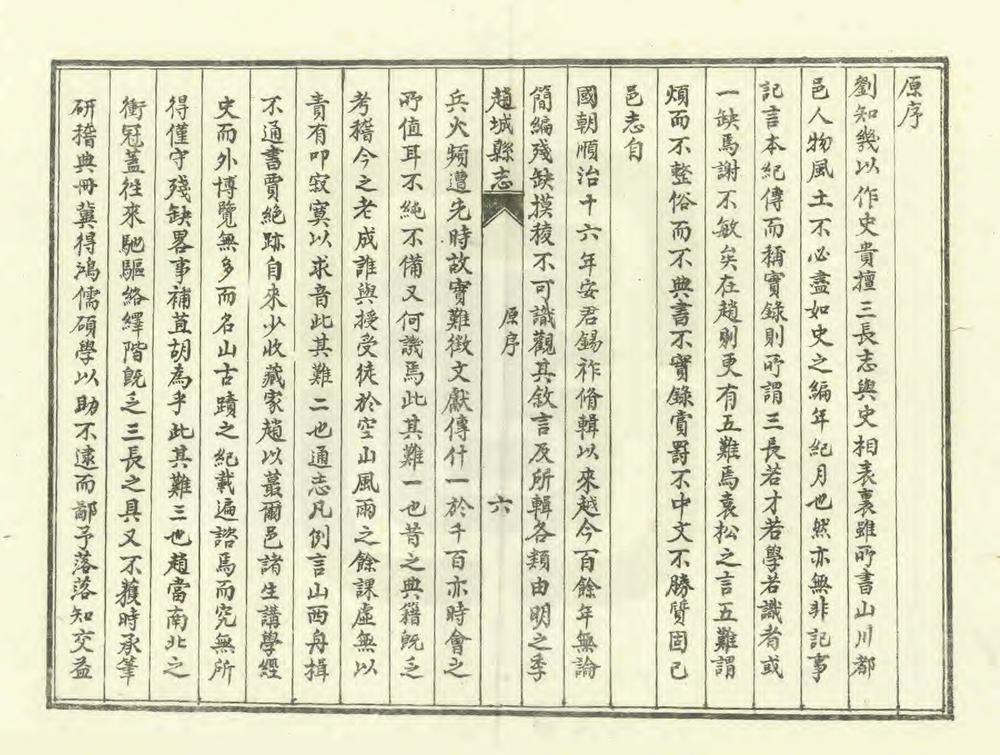 原序
劉知幾以作史貴擅三長志與史相表裏雖所書山川都
邑人物風土不必盡如史之編年紀月也然亦無非記事
記言本紀傳而稱實錄則所謂三長若才若學若識者或
一缺焉謝不敏矣在趙則更有五難焉袁松之言五難謂
煩而不整俗而不典書不實錄賞罰不中文不勝質固已
邑志自
國朝順治十六年安君錫祚脩輯以來越今百餘年無論
簡編殘缺摸稜不可識觀其敘言及所輯各類由明之季
趙城縣志
原序
六
兵火頻遭先時故實難徵文獻傳什一於千百亦時會之
所值耳不純不備又何譏焉此其難一也昔之典籍旣乏
考稽今之老成誰與授受徒於空山風雨之餘課虛無以
責有叩寂寞以求音此其難二也通志凡例言山西舟揖
不通書賈絕跡自來少收藏家趙以蕞爾邑諸生講學經
史而外博覽無多而名山古蹟之紀載遍諮焉而究無所
得僅守殘缺畧事補苴胡為乎此其難三也趙當南北之
衝冠蓋徃來馳驅絡繹階旣乏三長之具又不獲時承筆
研稽典冊冀得鴻儒碩學以助不逮而鄙予落落知交益